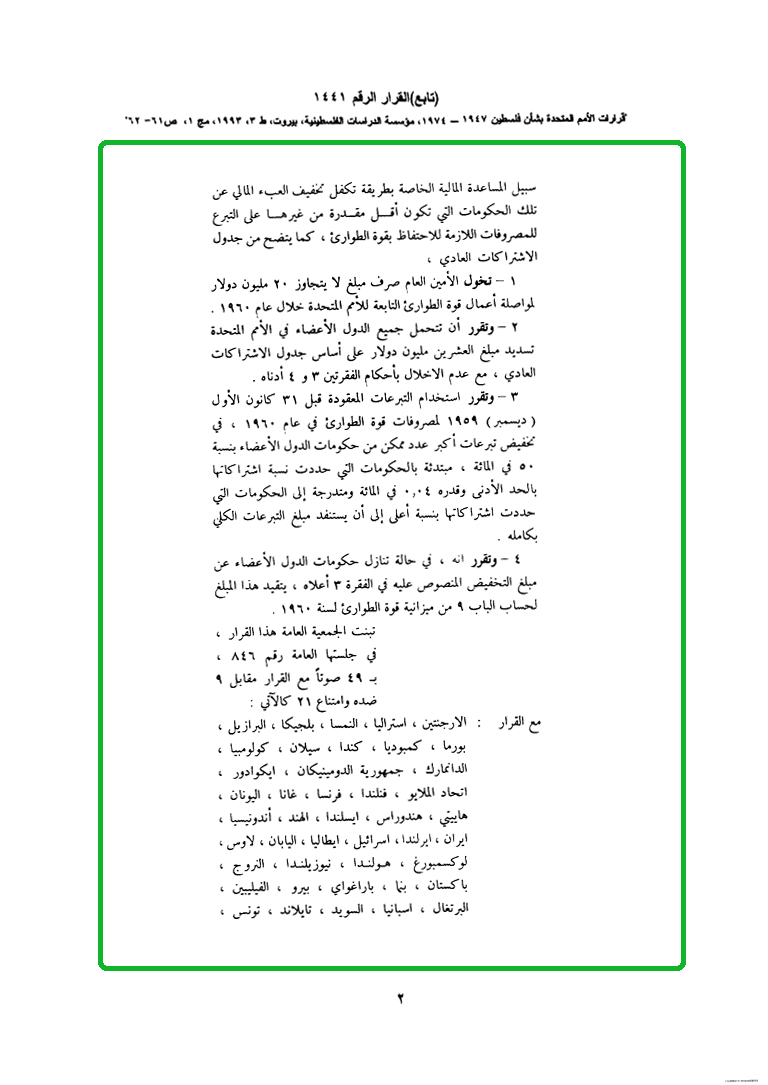 (تابع)القرار الرقم ١٤٤١
"قرارات الأمم المتحدة بشأن فلسطين ١٩٤٧ – ١٩٧٤، مؤسسة الدراسات الفلسطينية، بيروت، ط ٣، ١٩٩٣، مج ١، ص٦١- ٦٢"
سبيل المساعدة المالية الخاصة بطريقة تكفل تخفيف العبء المالي عن
تلك الحكومات التي تكون أقــل مقـدرة من غيرهــا على التبرع
للمصروفات اللازمة للاحتفاظ بقوة الطوارئ ، كما يتضح من جدول
الاشتراكات العادي ،
١ – تخول الأمين العام صرف مبلغ لا يتجاوز ٢٠ مليون دولار
لمواصلة أعمال قوة الطوارئ التابعة للأمم المتحدة خلال عام ١٩٦٠ .
٢ – وتقرر أن تتحمل جميع الدول الأعضاء في الأمم المتحدة
تسديد مبلغ العشرين مليون دولار على أساس جدول الاشتراكات
العادي ، مع عدم الاخلال بأحكام الفقرتين ٣ و ٤ أدناه .
٣ – وتقرر استخدام التبرعات المعقودة قبل ٣١ كانون الأول
( ديسمبر ) ١٩٥٩ لمصروفات قوة الطوارئ في عام ١٩٦٠ ، في
تخفيض تبرعات أكبر عدد ممكن من حكومات الدول الأعضاء بنسبة
٥٠ في المائة ، مبتدئة بالحكومات التي حددت نسبة اشتراكاتها
بالحد الأدنى وقدره ٠,٠٤ في المائة ومتدرجة إلى الحكومات التي
حددت اشتراكاتها بنسبة أعلى إلى أن يستنفد مبلغ التبرعات الكلي
بكامله .
٤ – وتقرر انه ، في حالة تنازل حكومات الدول الأعضاء عن
مبلغ التخفيض المنصوص عليه في الفقرة ٣ أعلاه ، يتقيد هذا المبلغ
لحساب الباب ٩ من ميزانية قوة الطوارئ لسنة ١٩٦٠ .
تبنت الجمعية العامة هذا القرار ،
في جلستها العامة رقم ٨٤٦ ،
بـ ٤٩ صوتاً مع القرار مقابل ٩
ضده وامتناع ٢١ كالآتي :
مع القرار : الارجنتين ، استراليا ، النمسا ، بلجيكا ، البرازيل ،
بورما ، كمبوديا ، كندا ، سيلان ، كولومبيا ،
الدانمارك ، جمهورية الدومينيكان ، ايكوادور ،
اتحاد الملايو ، فنلندا ، فرنسا ، غانا ، اليونان ،
هاييتي ، هندوراس ، ايسلندا ، الهند ، أندونيسيا ،
ايران ، ايرلندا ، اسرائيل ، ايطاليا ، اليابان ، لاوس ،
لوكسمبورغ ، هـولنـدا ، نيوزيلنـدا ، النروج ،
باكستان ، بنما ، باراغواي ، بيرو ، الفيليبين ،
البرتغال ، اسبانيا ، السويد ، تايلاند ، تونس ،
٢